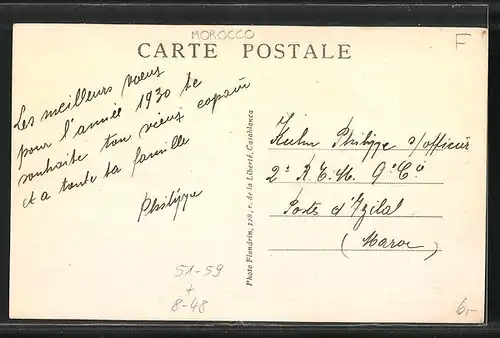 MOROCCO
F
CARTE POSTALE
Les meilleurs voeux
pour l'année 1930 te
souhaite ton vieux copain
et a toute ta famille
Philippe
51-59
+
8-48
Photo Flandrin, 128, r. de la Liberté, Casablanca
Kuhn Philippe s/officier
2e R.E.M. 9e Cie
Poste d'Azilal
(Maroc)
6,-